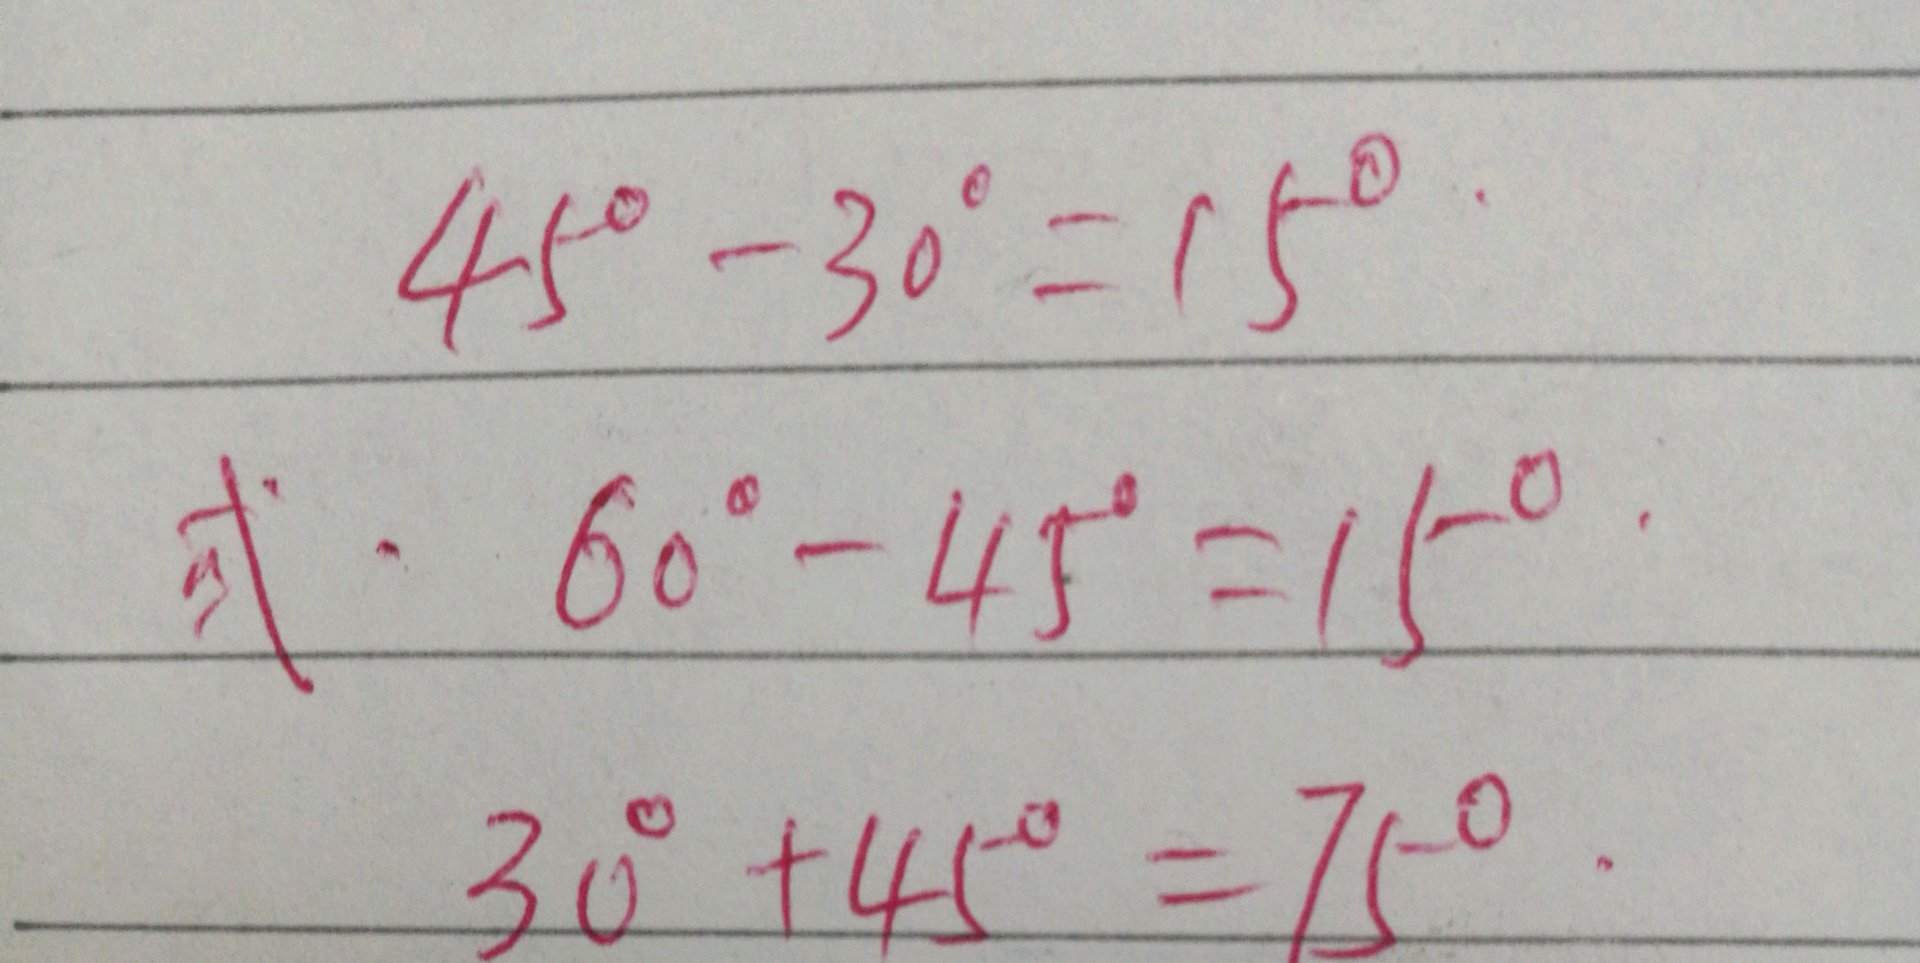 45°-30°=15°.
或. 60°-45°=15°.
30°+45°=75°.